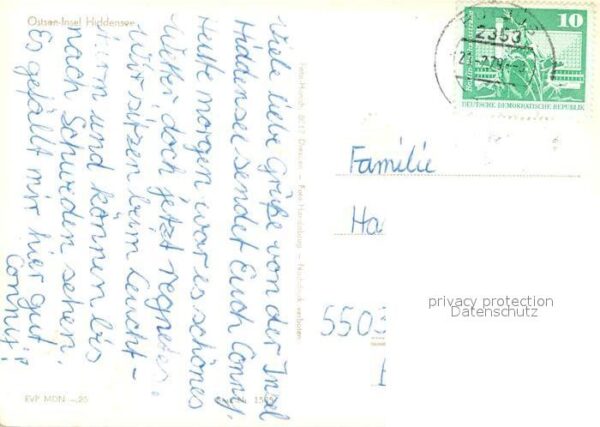 Ostsee-Insel Hiddensee
Viele liebe Grüße von der Insel
Hiddensee sendet Euch Conny.
Heute morgen war es schönes
Wetter, doch jetzt regnet es.
Wir sitzen beim Leucht-
turm und können bis
nach Schweden sehen.
Es gefällt mir hier gut
Conny!
EVP MDN –.25
10
DEUTSCHE DEMOKRATISCHE REPUBLIK
2353
Familie
Ha
5503
privacy protection
Datenschutz